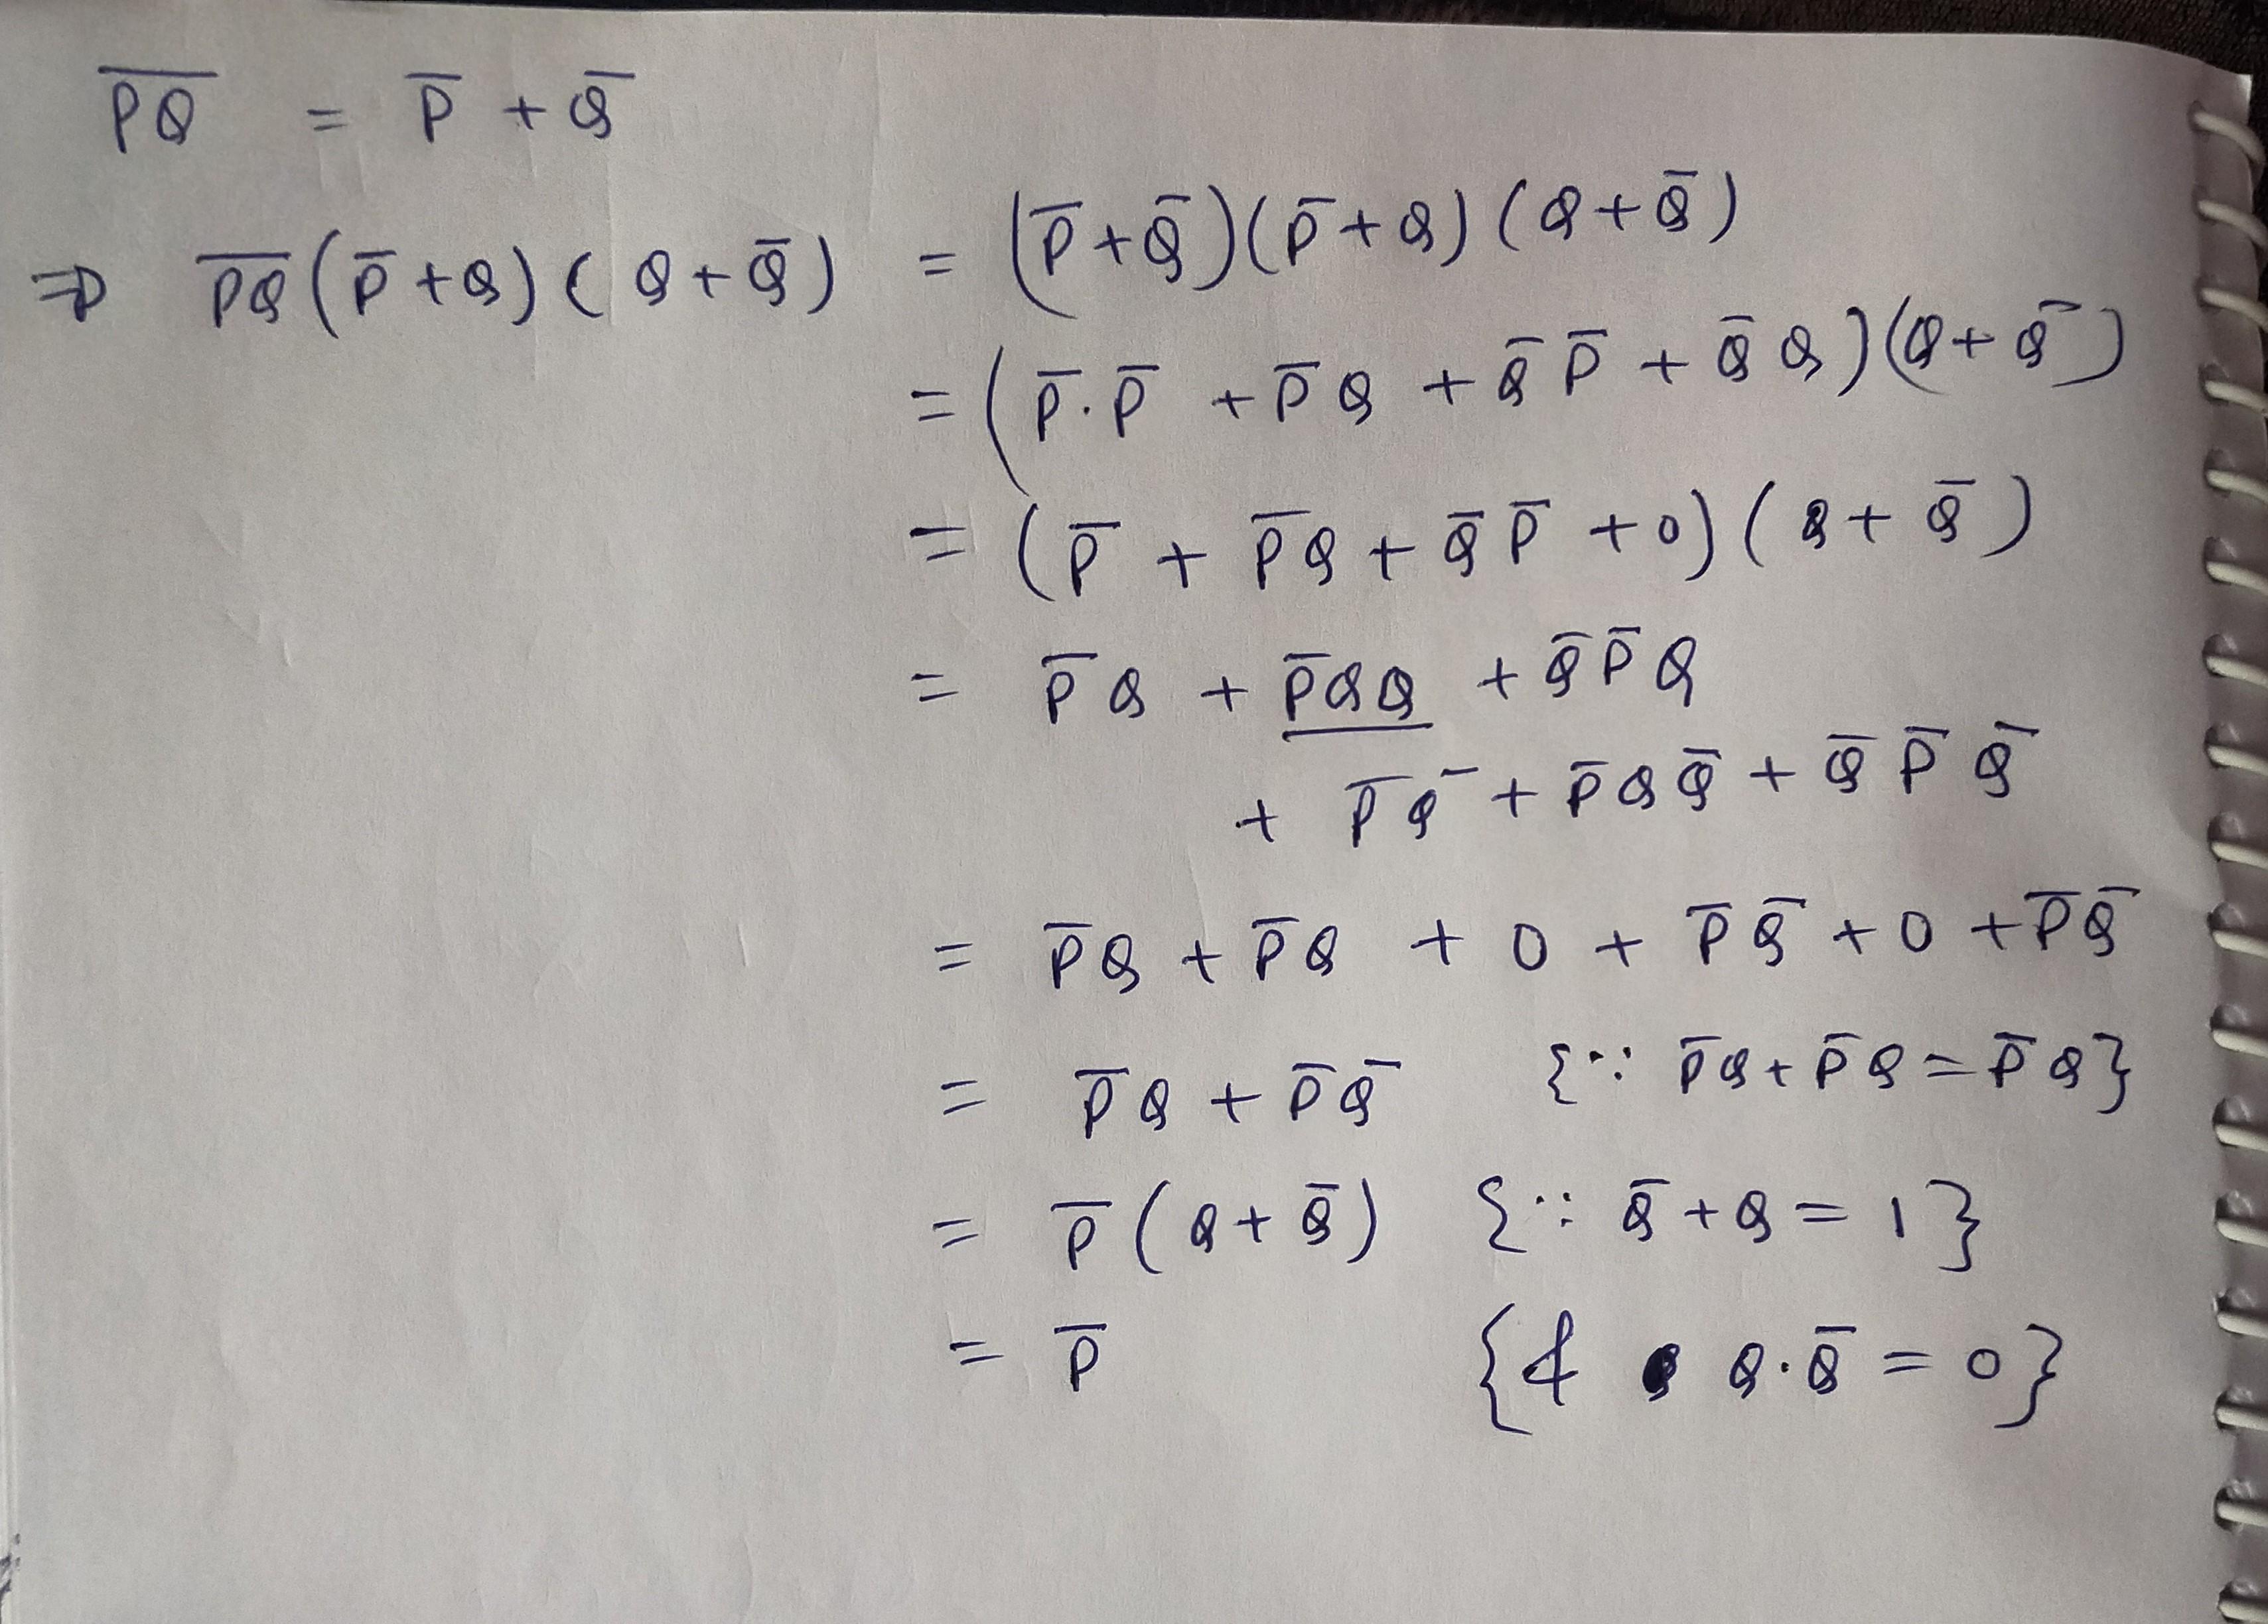 P̅Q̅ = P̅ + Q̅
⇒ P̅Q̅ (P̅ + Q) ( Q + Q̅ ) = (P̅ + Q̅)(P̅ + Q) (Q + Q̅)
= (P̅.P̅ + P̅Q + Q̅P̅ + Q̅Q)(Q + Q̅)
= (P̅ + P̅Q + Q̅P̅ + 0) (Q + Q̅)
= P̅Q + P̅QQ + Q̅P̅Q
+ P̅Q̅ + P̅QQ̅ + Q̅P̅Q̅
= P̅Q + P̅Q + 0 + P̅Q̅ + 0 + P̅Q̅
= P̅Q + P̅Q̅ {∵ P̅Q + P̅Q = P̅Q}
= P̅(Q + Q̅) {∵ Q̅ + Q = 1}
= P̅ {& Q.Q̅ = 0}